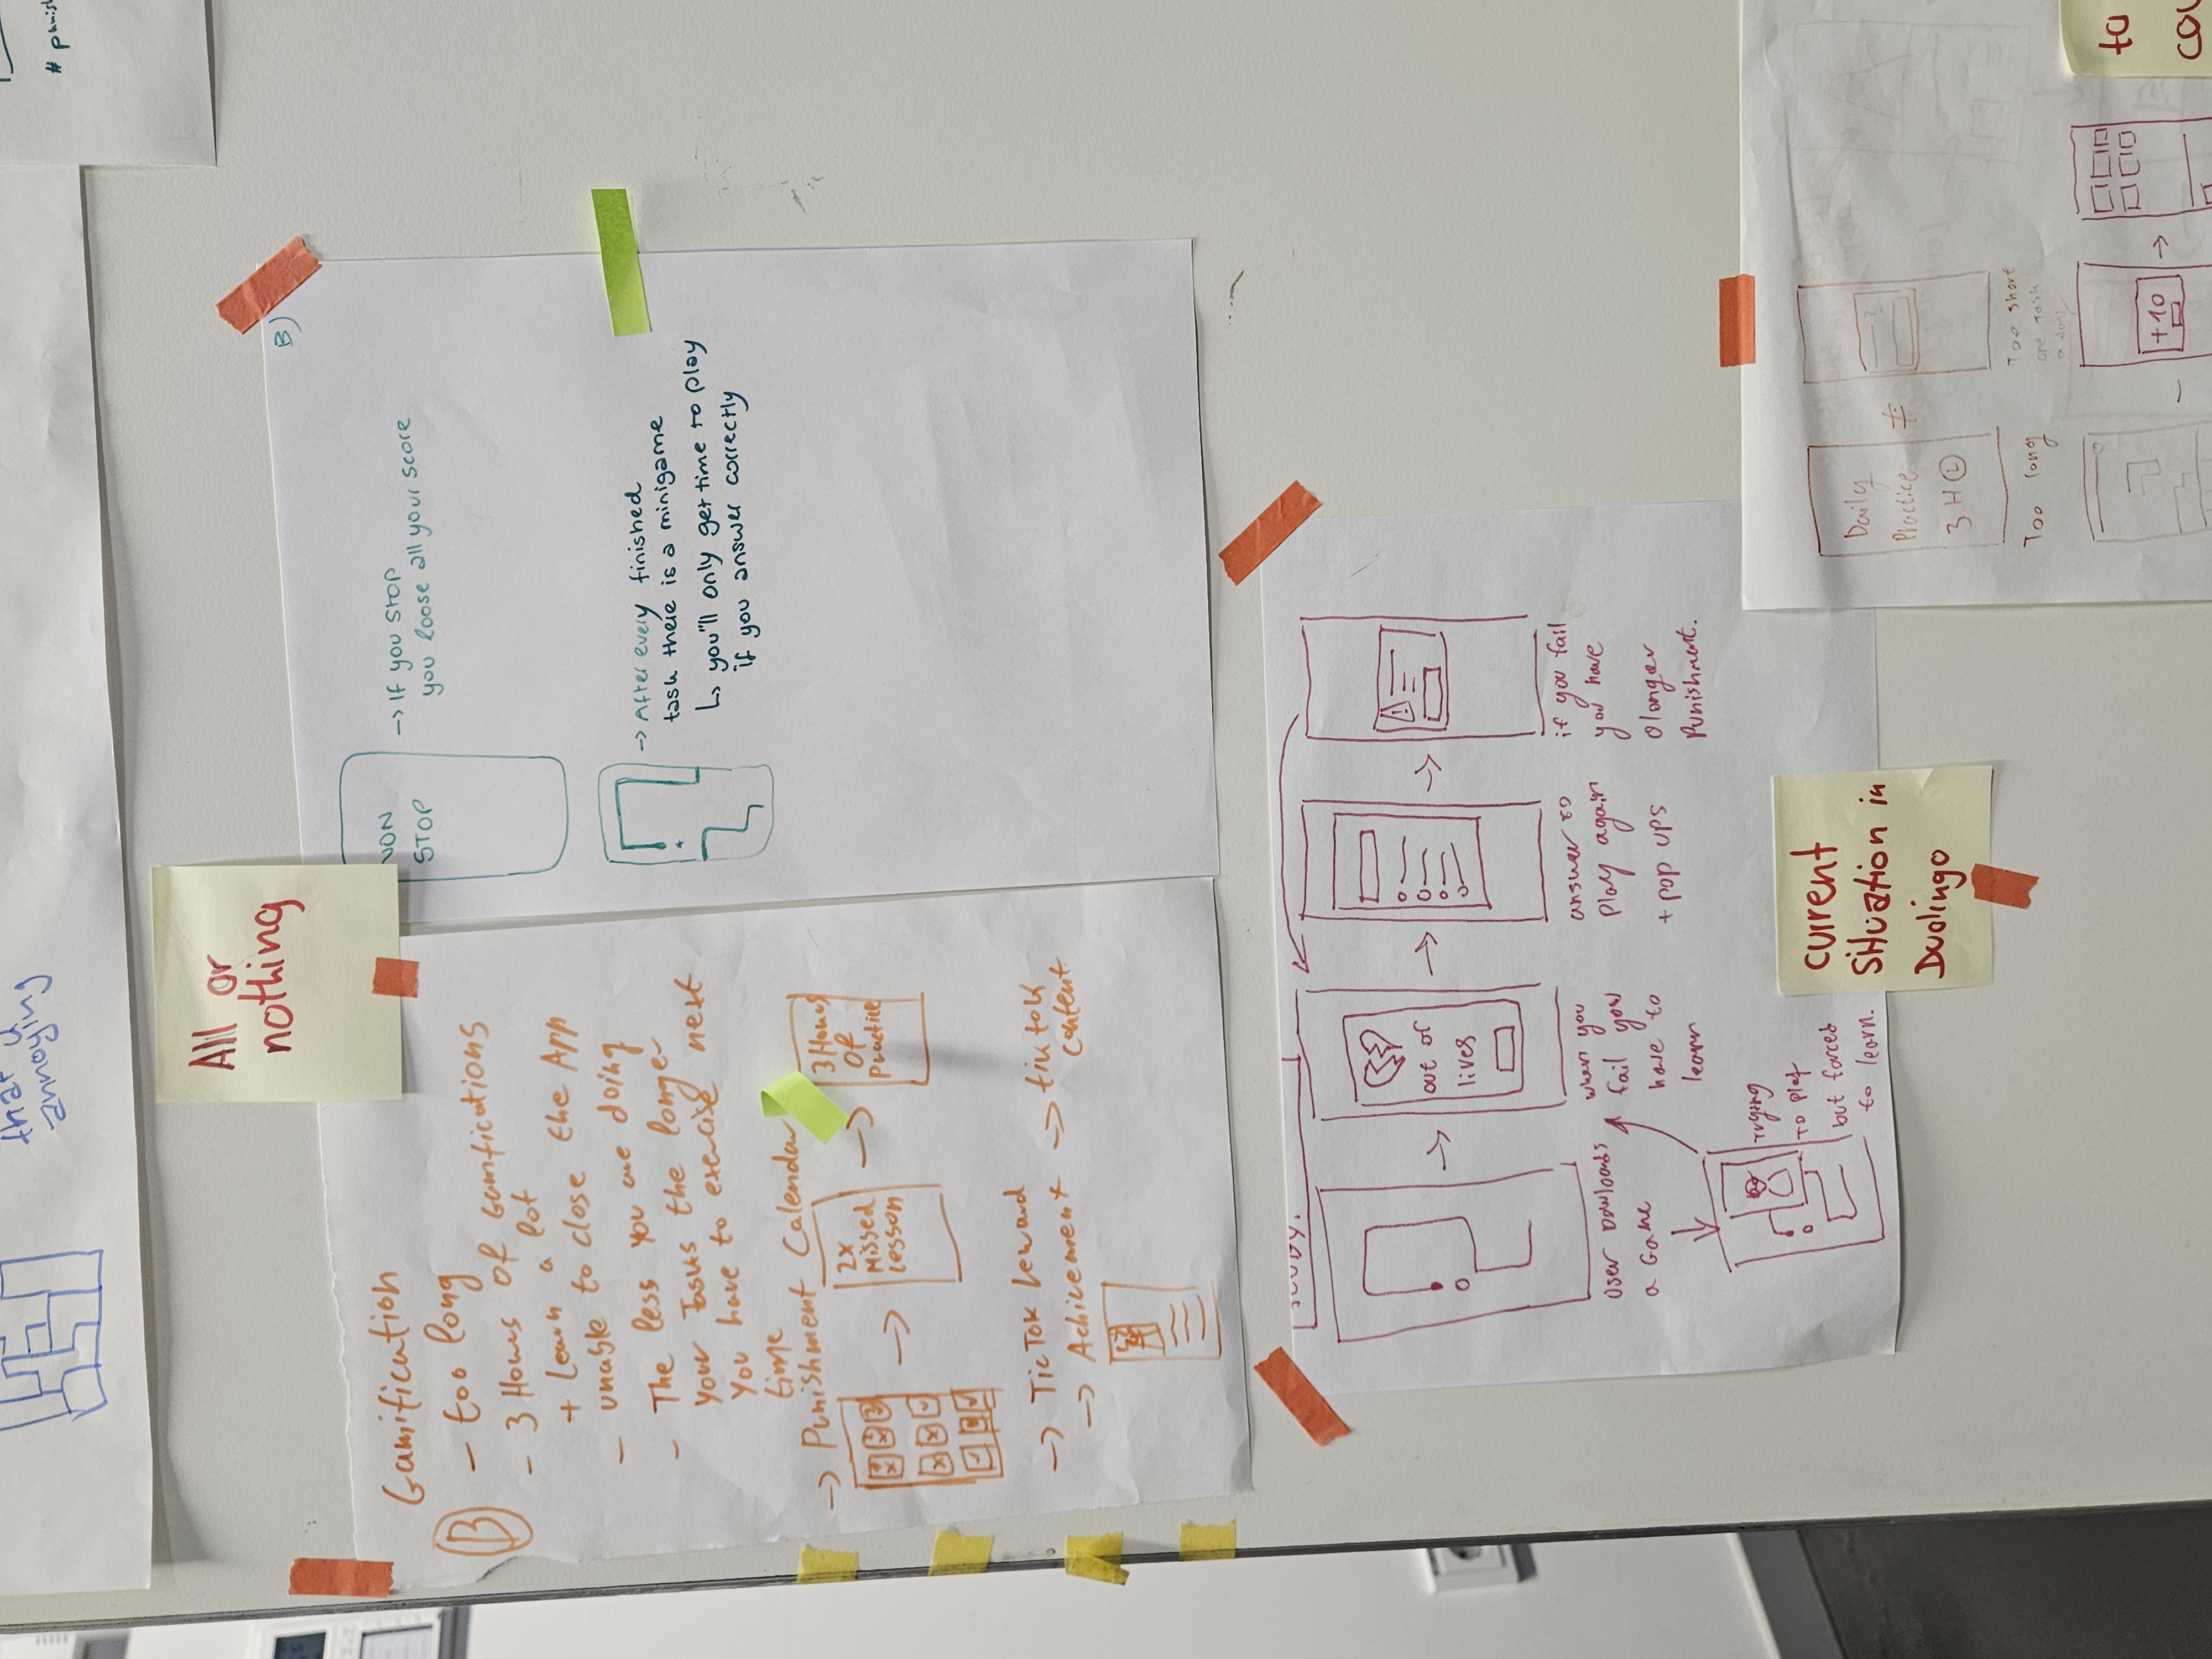 that
annoying
# punish
All or
nothing
Gamification
B
- too long
- 3 Hours of Gamfications
+ Learn a lot
- unable to close the App
- The less you are doing
your Tasks the longer
you have to exercise next
time
-> Punishment Calendar
2x
Missed
Lesson
3 Hours
Of
Practice
-> TicTok Reward
-> Achivement -> tiktok
content
B)
NON
STOP
-> If you stop
you loose all your score
-> After every finished
task there is a minigame
↳ you'll only get time to play
if you answer correctly
STUDY.
out of
lives
User Dowloads
a Game
when you
fail you
have to
learn
answer to
play again
+ pop ups
if you fail
you have
a longer
Punishment.
Trying
to play
but forced
to learn.
current
Situation in
Duolingo
Daily
Practice
3 H
≠
Too long
Too short
one Task
a day
+10
to
cou